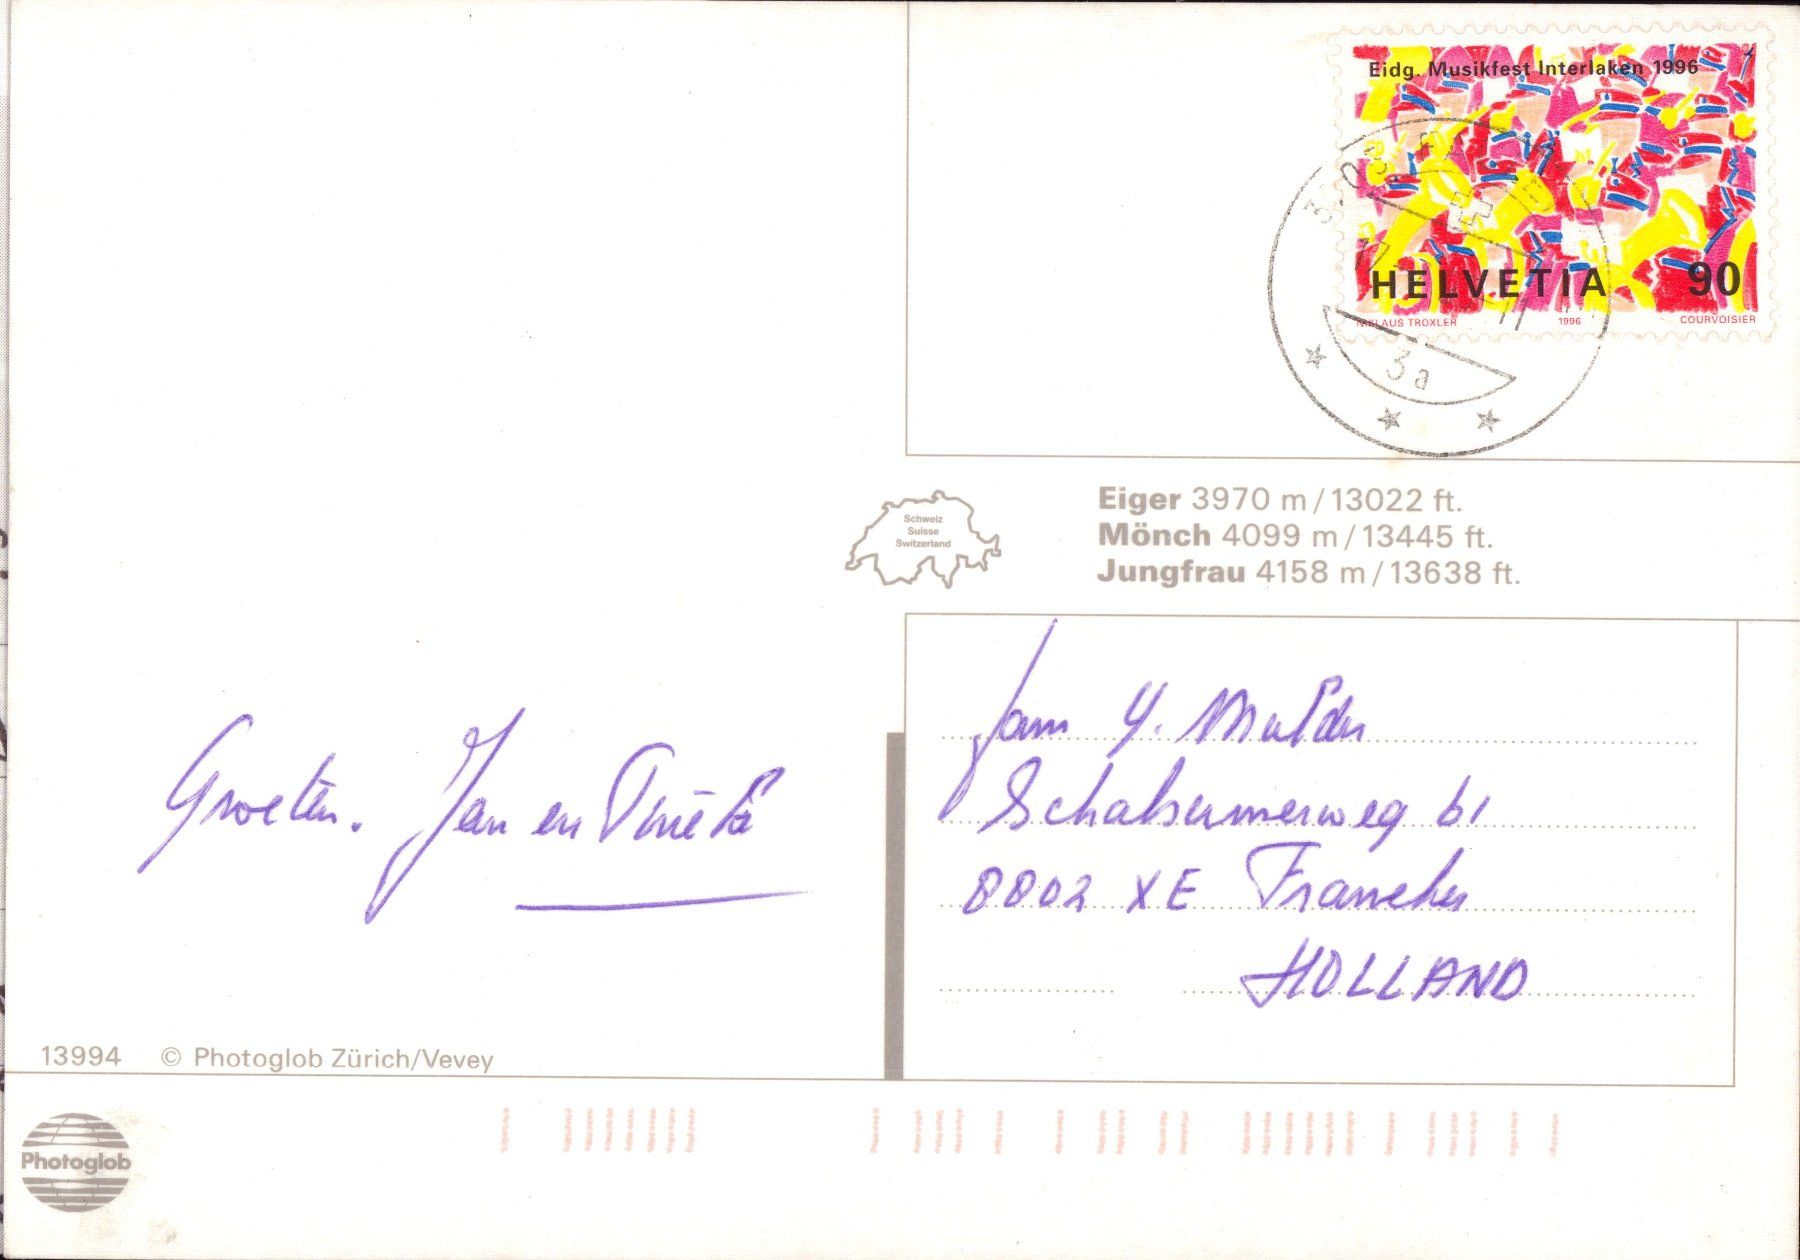 Eidg. Musikfest Interlaken 1996
HELVETIA 90
NIKLAUS TROXLER 1996 COURVOISIER
3a
Schweiz
Suisse
Switzerland
Eiger 3970 m / 13022 ft.
Mönch 4099 m / 13445 ft.
Jungfrau 4158 m / 13638 ft.
Groeten. Jan en
fam Y. Mulder
61
8802 XE Franeker
HOLLAND
13994 © Photoglob Zürich/Vevey
Photoglob